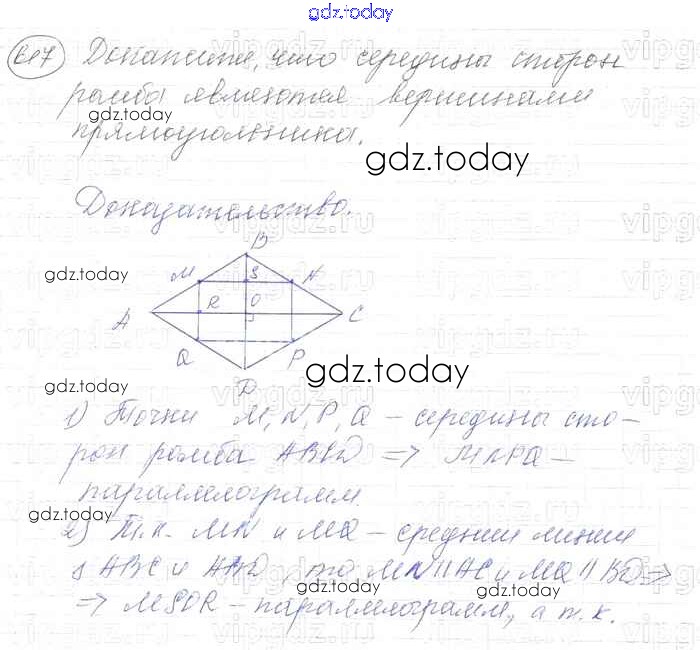 gdz.today
617 Докажите, что середины сторон
ромба являются вершинами
gdz.today
прямоугольника.
gdz.today
Доказательство.
vipgdz.ru
B
gdz.today
M S N
A R O C
Q P
gdz.today
D
1) Точки M, N, P, Q – середины сто-
gdz.today
рон ромба ABCD => MNPQ –
параллелограмм.
gdz.today
2) Т.к. MN и MQ – средние линии
ABC и ABD, то MN || AC и MQ || BD =>
=> MSOR – параллелограмм, а т.к.
gdz.today
gdz.today